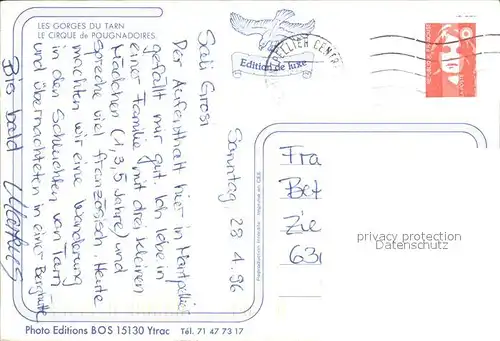 LES GORGES DU TARN
LE CIRQUE de POUGNADOIRES
Edition de luxe
PELLIER CENTR
Sonntag, 28 4.96
Sali Grosi
Der Aufenthalt hier in Montpellier
gefällt mir gut. Ich lebe in
einer Familie mit drei kleinen
Mädchen (1,3,5 Jahre) und
spreche viel französisch. Heute
machten wir eine Wanderung
in den Schluchten von Tarn
und übernachteten in einer Berghütte
Bis bald Markus
Fra
Bet
Zie
631
privacy protection
Datenschutz
Photo Editions BOS 15130 Ytrac Tél. 71 47 73 17